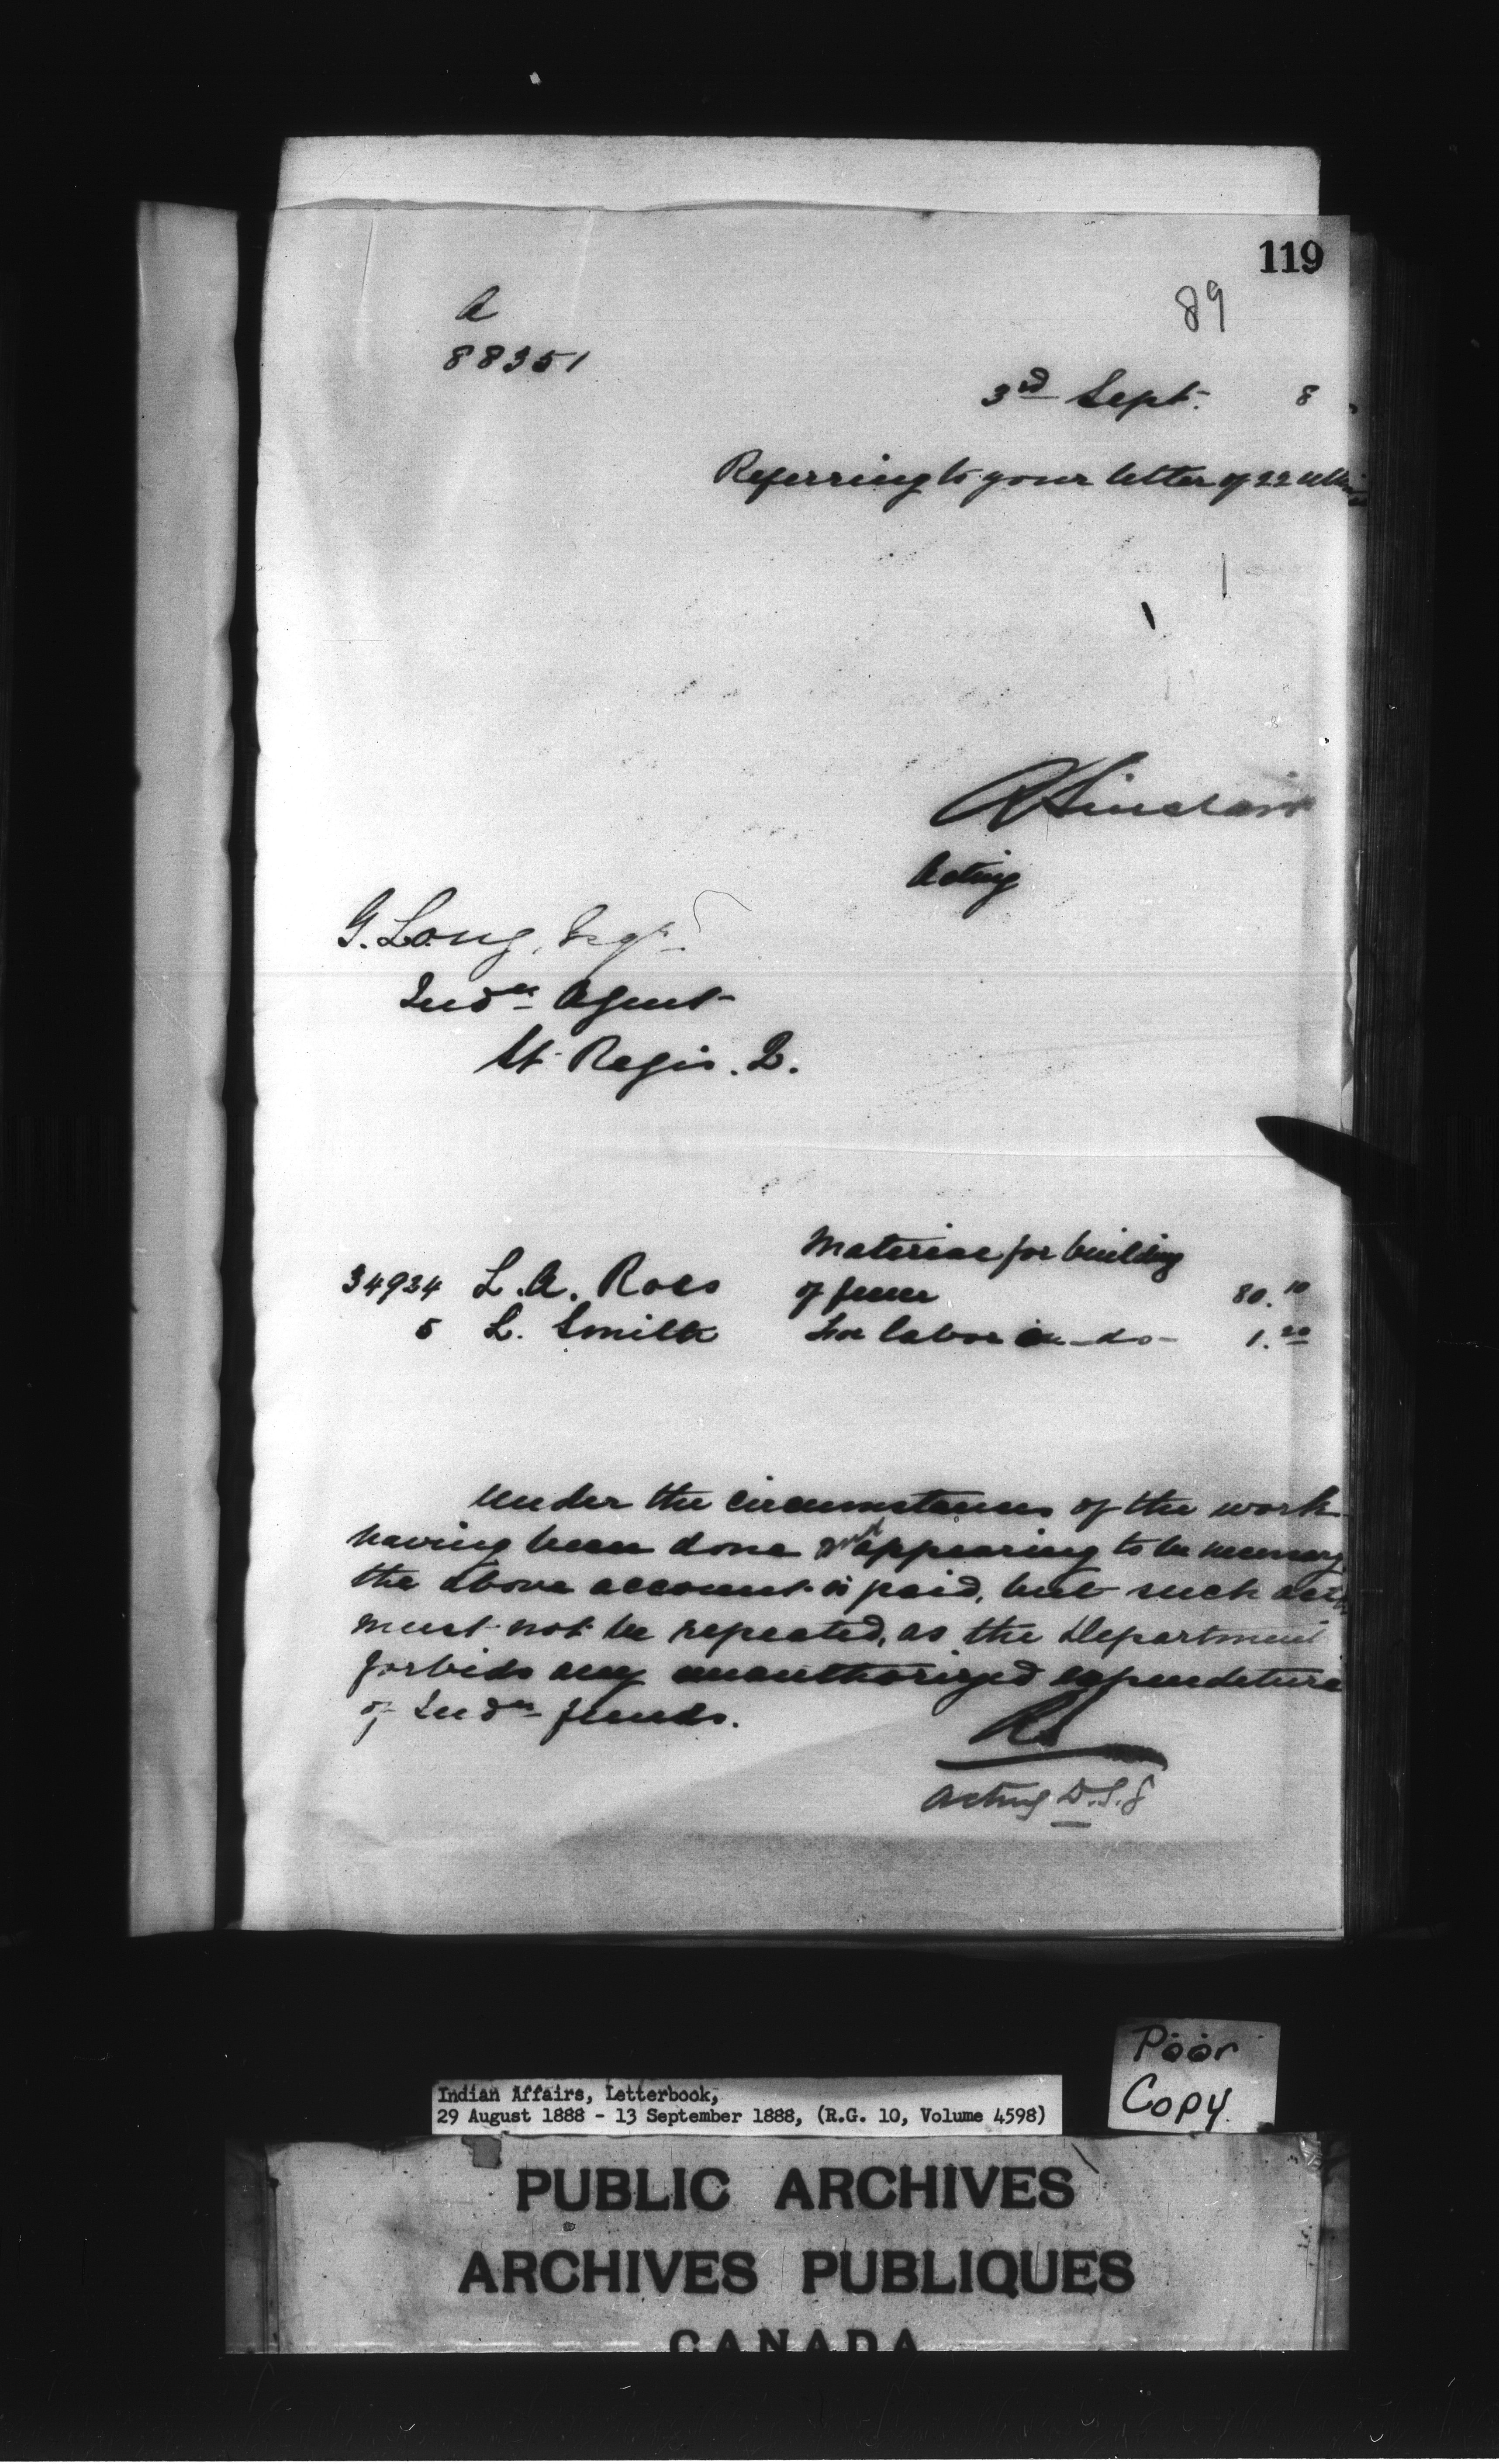 119
89
A
88351
3rd Sept. 8
Referring to your letter of 22 ulti
R Sinclair
Acting
G. Long, Esqr
Indn Agent
St Regis. Q.
Material for building
34934 L. A. Ross of fence 80.10
5 L. Smith For labor in -do- 1.20
Under the circumstances of the work
having been done and appearing to be necessary
the above account is paid, but such
must not be repeated, as the Department
forbids any unauthorized expenditure
of Indn funds.
RS
Acting D.S.G
Poor
Copy
Indian Affairs, Letterbook,
29 August 1888 - 13 September 1888, (R.G. 10, Volume 4598)
PUBLIC ARCHIVES
ARCHIVES PUBLIQUES
CANADA